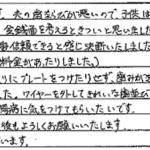 夫の歯ならびが悪いので、子供は
金銭面を考えるときついと思いました
信頼できると感じ決断いたしました
料金がありました。）
りにプレートをつけたりせず、歯みがき
た。ワイヤーを外してきれいな歯並び
周病に気をつけてもらいたいです。
後もよろしくお願いいたします
います。